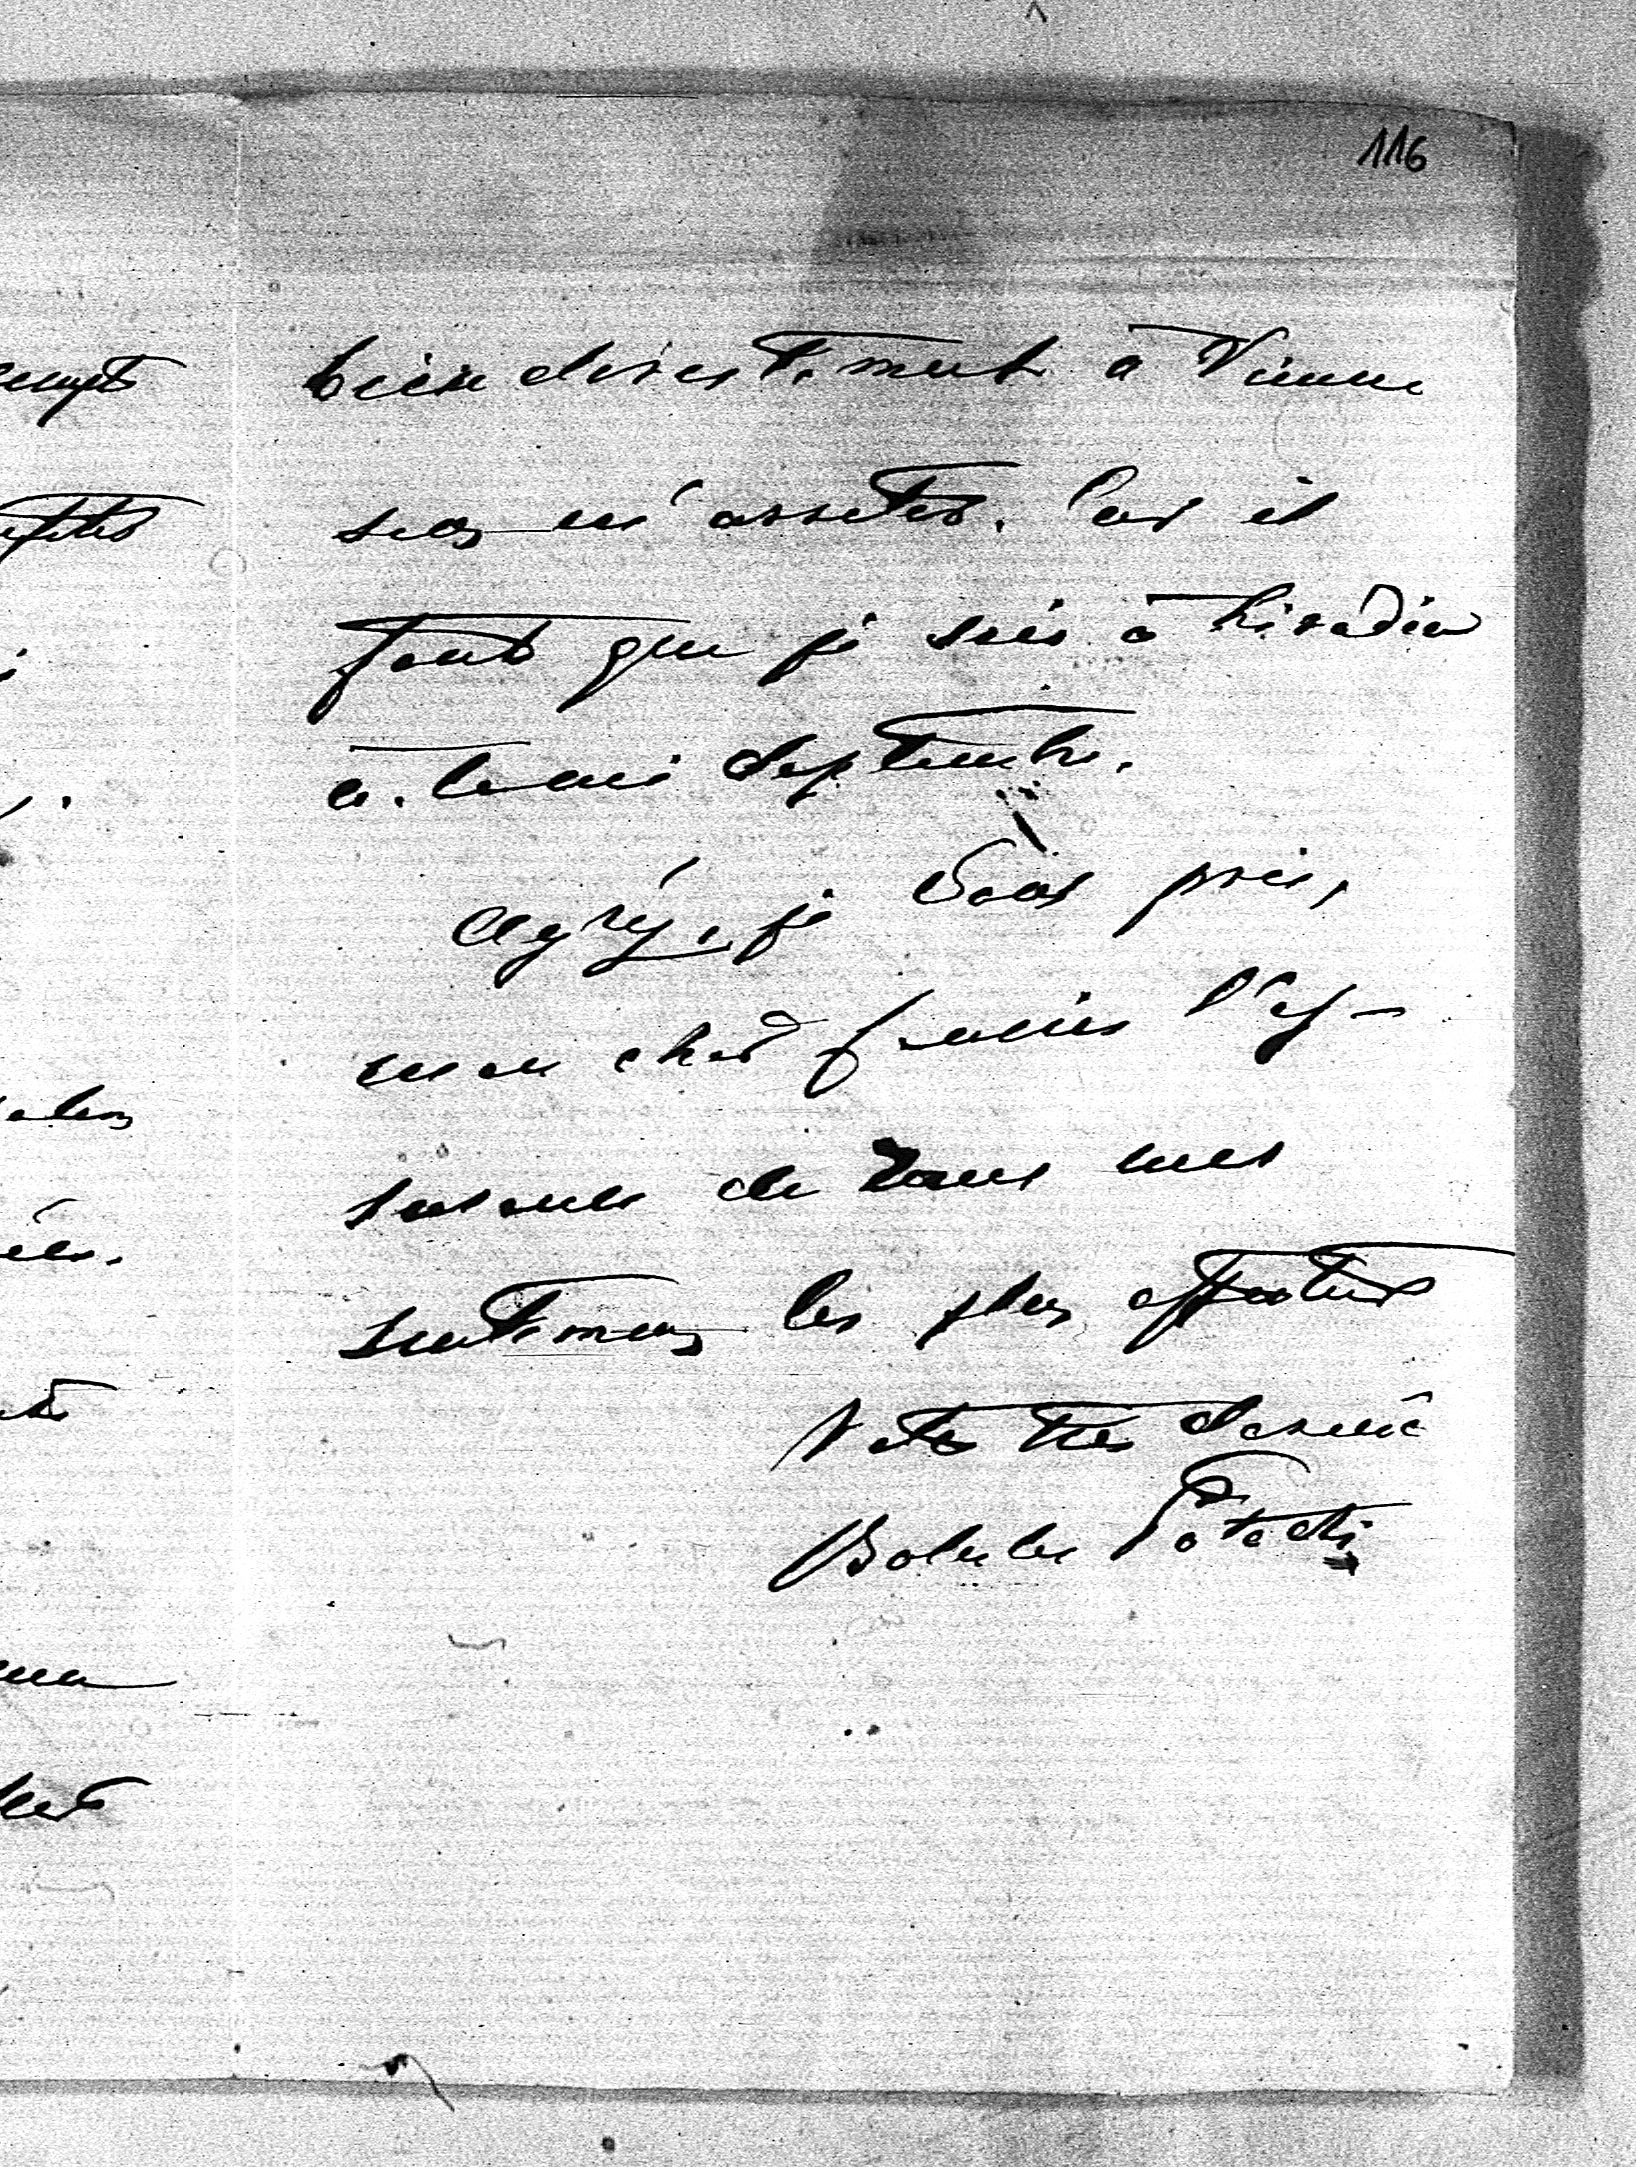 116
bien directement à Vienne
sans m'arreter. Car il
faut que je sois à Livadia
à la mi Septembre.
Agréz, je Vous prie,
mon cher l'as-
surance de tous mes
sentimens les plus affectueux
Votre très devoué
Boleslas Potocki